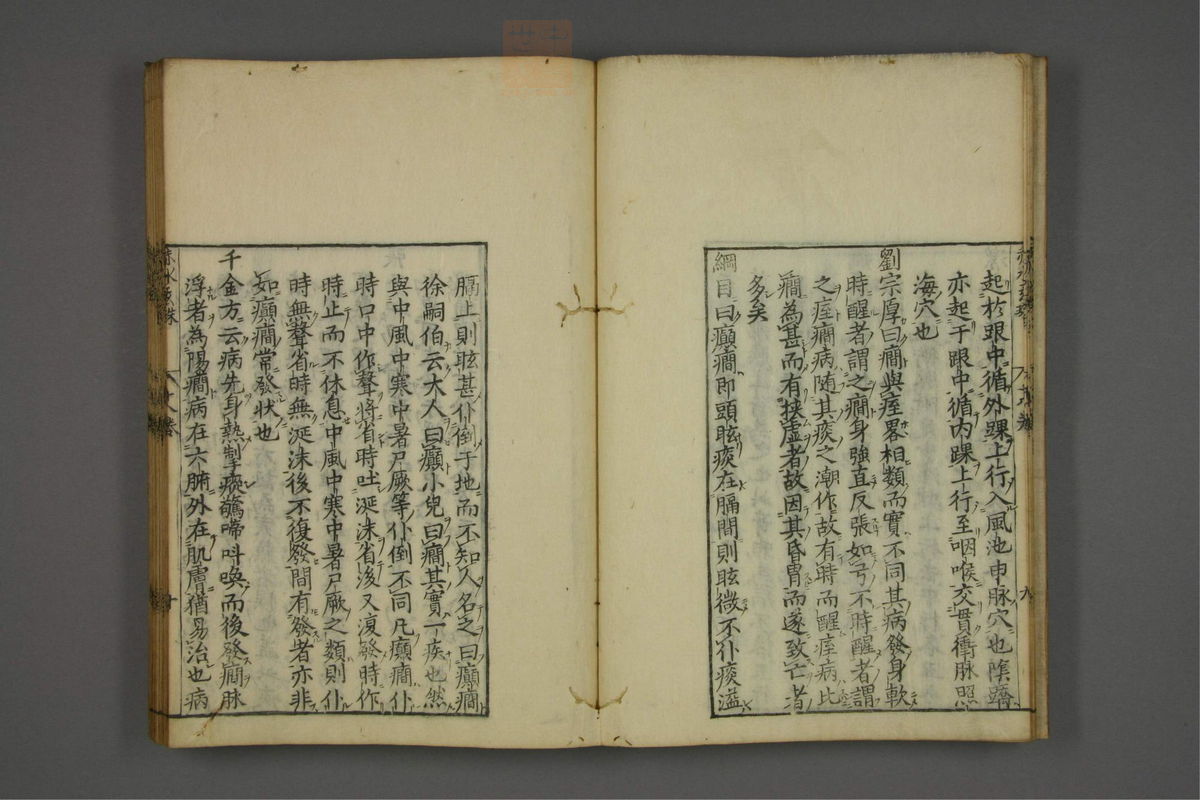 起於跟中循外踝上行入風池也申脉穴也陰蹻
亦起于跟中循内踝上行至咽喉交貫衝脉照
海穴也
劉宗厚曰癎與痓畧相類而實不同其病發身軟
時醒者謂之癎身強直反張如弓不時醒者謂
之痓癎病随其痰之潮作故有時而醒痓病比
癎為甚而有挟虚者故因其昏冒而遂致亡者
多矣
綱目曰癲癎即頭眩痰在膈間則眩微不仆痰溢
膈上則眩甚仆倒于地而不知人名之曰癲癎
徐嗣伯云大人曰癲小兒曰癎其實一疾也然
與中風中寒中暑尸厥等仆倒不同凡癲癎仆
時口中作聲将省時吐涎沫省後又復發時作
時止而不休息中風中寒中暑尸厥之類則仆
時無聲省時無涎沫後不復發間有發者亦非
如癲癎常發状也
千金方云病先身熱掣瘲驚啼呌喚而後發癎脉
浮者為陽癎病在六腑外在肌膚猶易治也病